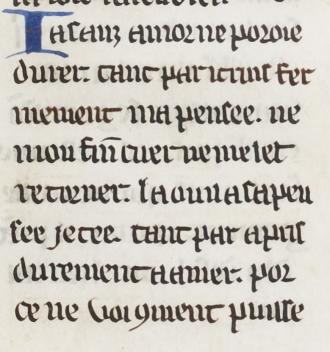 Ia sanz amor ne poroie
durer. tant par i truis fer
mement ma pensee. ne
mon fin cuer ne me let
retorner. la ou il a sa pen
see jetee. tant par apris
durement a amer. por
ce ne voi conment puisse